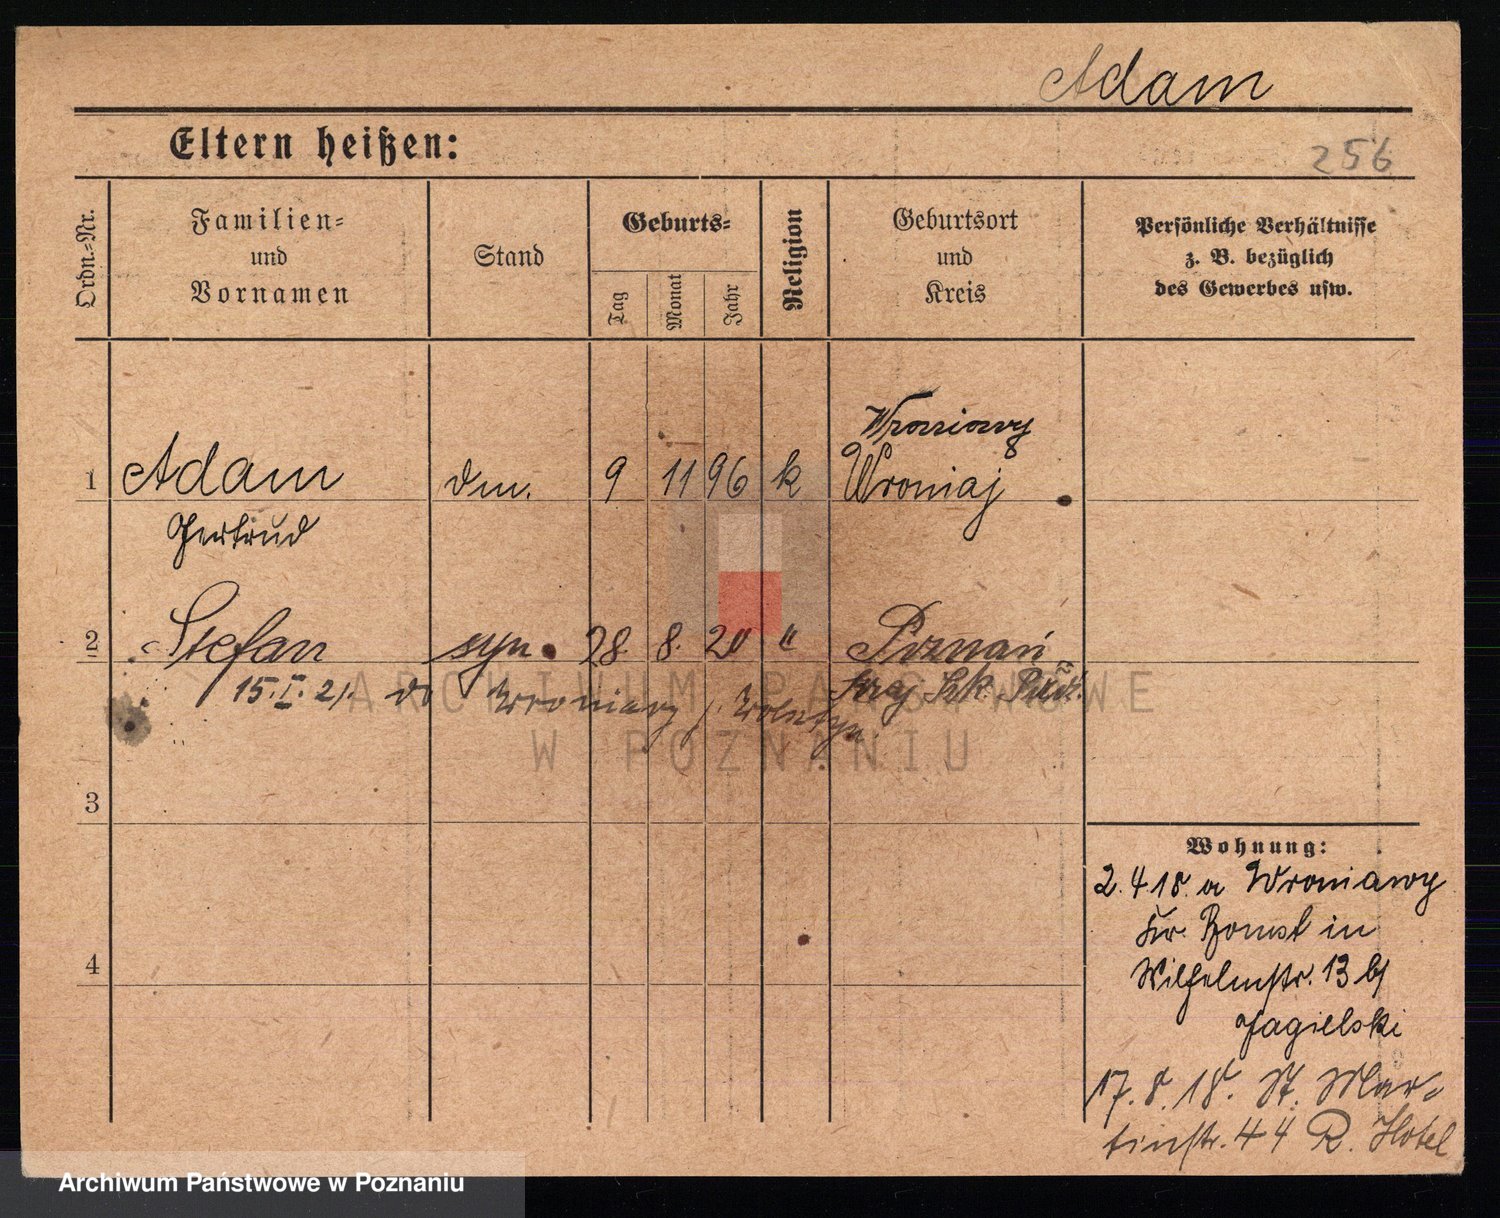 Adam
Eltern heißen:
256
Ordn.=Nr.
Familien=
und
Vornamen
Stand
Geburts=
Tag
Monat
Jahr
Religion
Geburtsort
und
Kreis
Persönliche Verhältnisse
z. B. bezüglich
des Gewerbes usw.
Wroniawy
1 Adam 9 11 96 k Wroniaj
Gertrud
2 Stefan syn. 28. 8. 20 " Poznań
15. I. 21. do Wroniawy p. Wolsztyn.
3
4
Wohnung:
2.4.18. a Wroniawy
Kr. Bomst in
Wilhelmstr. 13 b/
Jagielski
17.8.18. St. Mar-
tinstr. 44 R. Hotel
ARCHIWUM PAŃSTWOWE
W POZNANIU
Archiwum Państwowe w Poznaniu